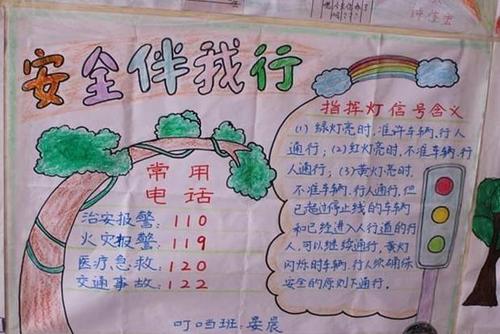 安全伴我行
常用
电话
治安报警：110
火灾报警：119
医疗急救：120
交通事故：122
叮当班 晏晨
指挥灯信号含义
(1) 绿灯亮时,准许车辆、行人
通行；(2)红灯亮时,不准车辆、行
人通行；(3)黄灯亮时,
不准车辆、行人通行,但
已超过停止线的车辆
和已经进入人行道的行
人,可以继续通行,黄灯
闪烁时车辆、行人须确保
安全的原则下通行.